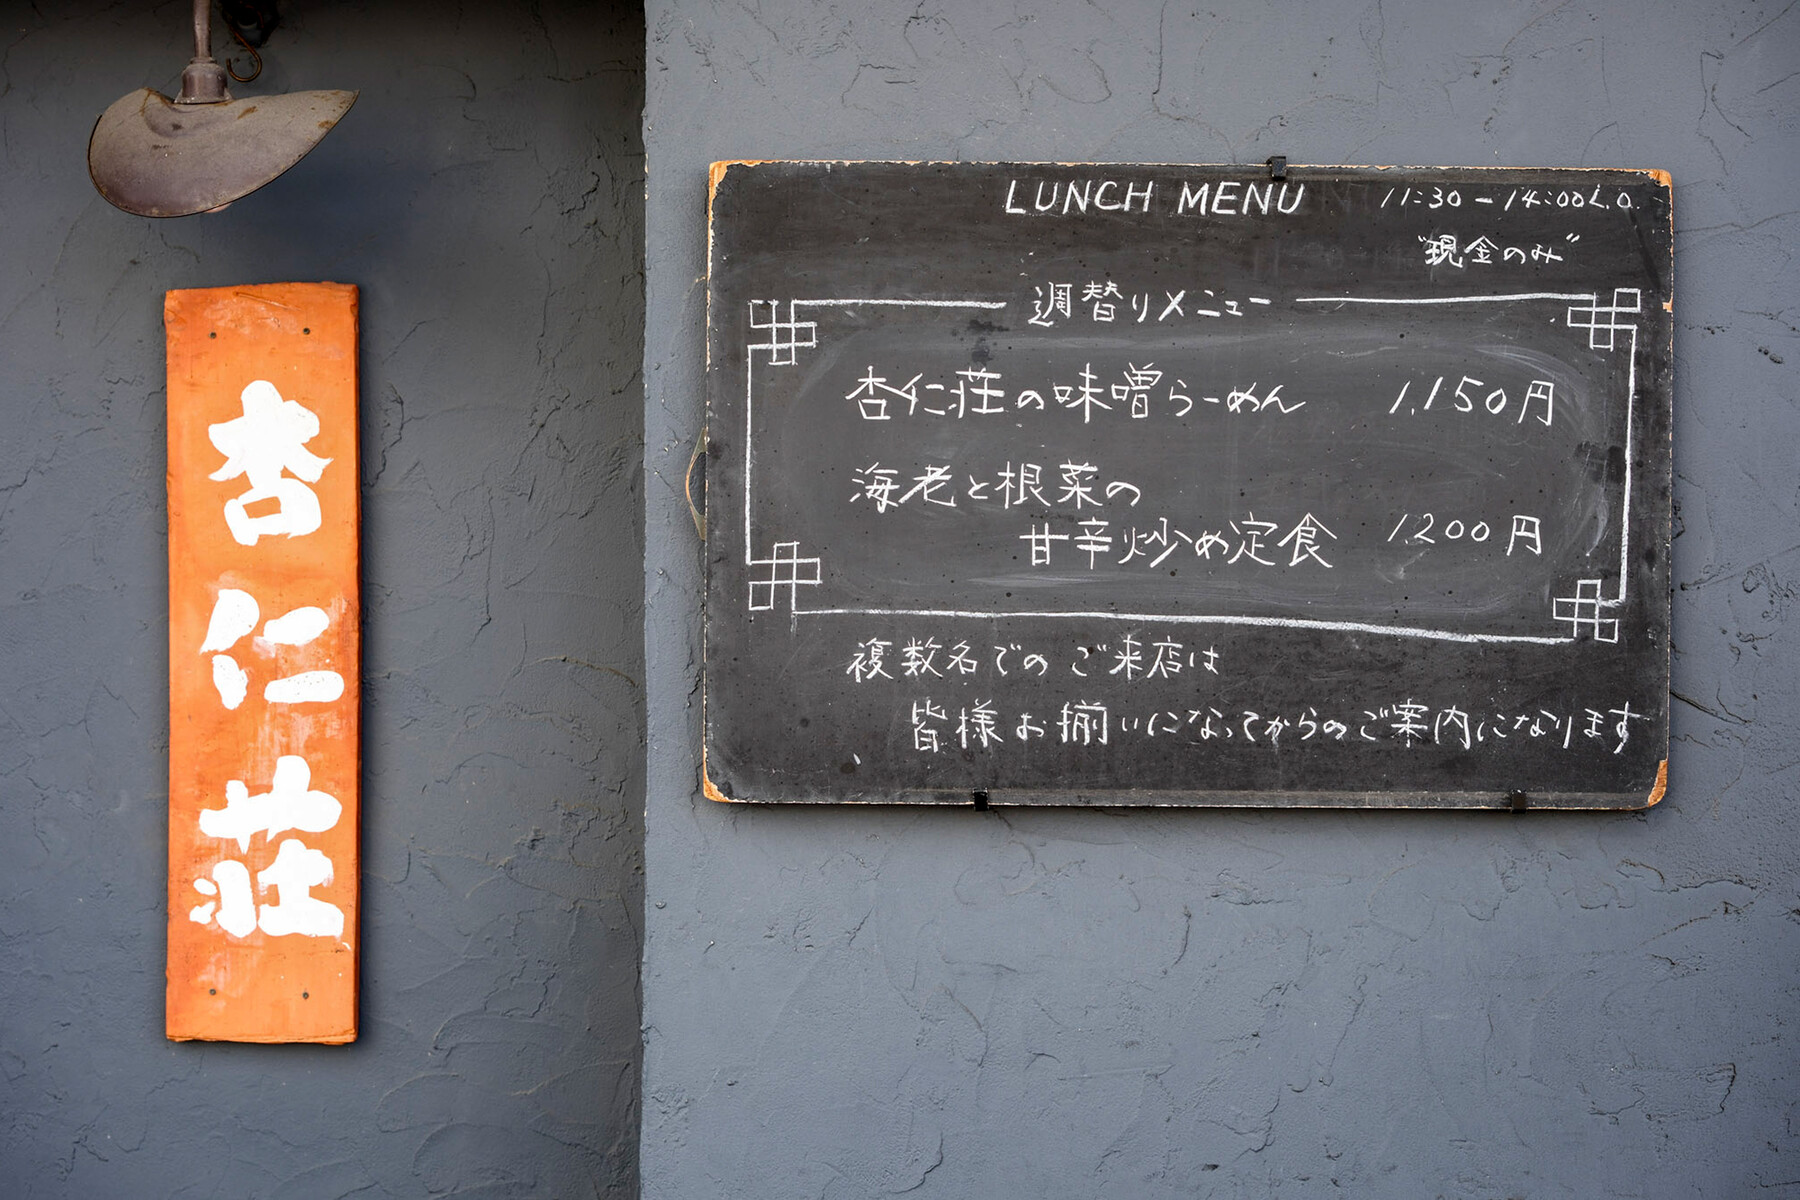 杏仁荘
LUNCH MENU 11:30 - 14:00 L.O.
"現金のみ"
週替りメニュー
杏仁荘の味噌らーめん 1,150円
海老と根菜の
甘辛炒め定食 1200円
複数名でのご来店は
皆様お揃いになってからのご案内になります